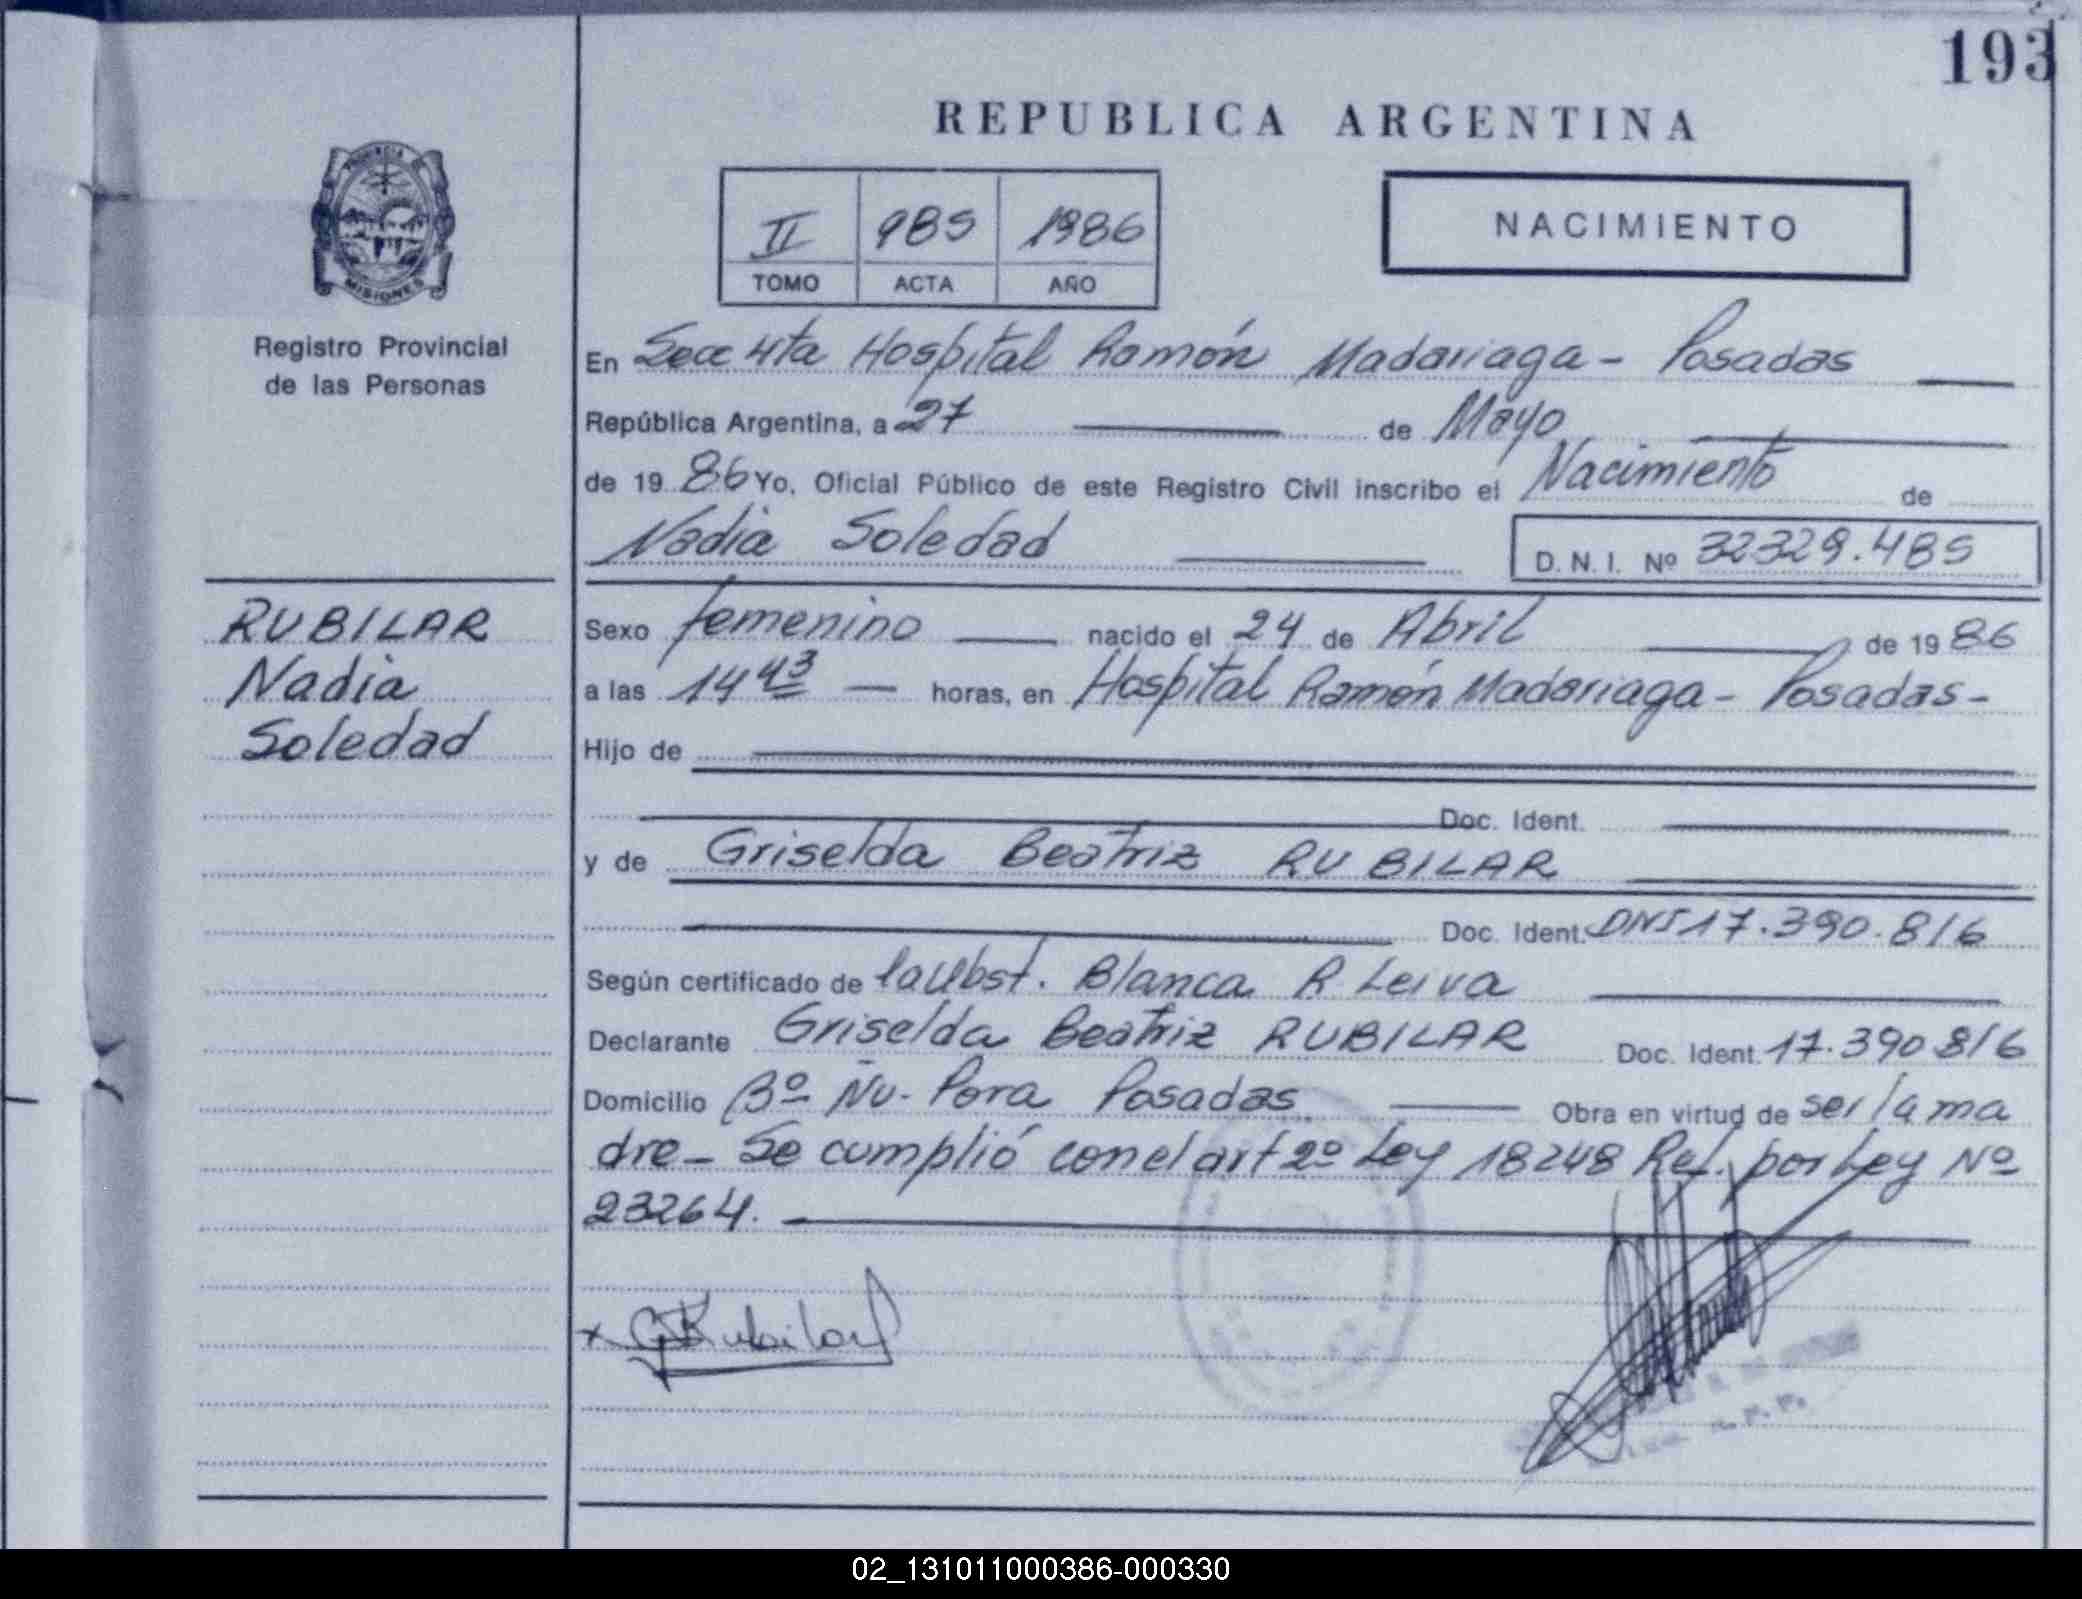 193
REPUBLICA ARGENTINA
PROVINCIA DE
MISIONES
II 985 1986
TOMO ACTA AÑO
NACIMIENTO
Registro Provincial
de las Personas
En Secc 4ta Hospital Ramón Madariaga - Posadas
República Argentina, a 27 de Mayo
de 19 86 Yo, Oficial Público de este Registro Civil inscribo el Nacimiento de
Nadia Soledad D. N. I. Nº 32329.485
RUBILAR
Nadia
Soledad
Sexo femenino nacido el 24 de Abril de 19 86
a las 14 43 horas, en Hospital Ramón Madariaga - Posadas -
Hijo de
Doc. Ident.
y de Griselda Beatriz RUBILAR
Doc. Ident. DNI 17.390.816
Según certificado de la Obst. Blanca R Leiva
Declarante Griselda Beatriz RUBILAR Doc. Ident. 17.390 816
Domicilio Bº Ñu - Pora Posadas Obra en virtud de ser la ma
dre - Se cumplió con el art 2º Ley 18248 Ref. por Ley Nº
23264.
x G B Rubilar
02_131011000386-000330